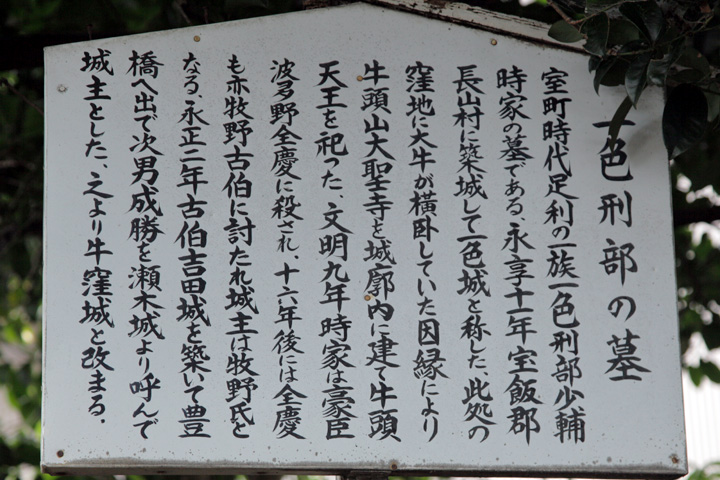 一色刑部の墓
室町時代足利の一族一色刑部少輔
時家の墓である、永享十一年宝飯郡
長山村に築城して一色城と称した、此処の
窪地に大牛が横卧していた因縁により
牛頭山大聖寺を城廓内に建て牛頭
天王を祀った、文明九年時家は豪臣
波多野全慶に殺され、十六年後には全慶
も亦牧野古伯に討たれ城主は牧野氏と
なる、永正二年古伯吉田城を築いて豊
橋へ出で次男成勝を瀬木城より呼んで
城主とした、之より牛窪城と改まる、